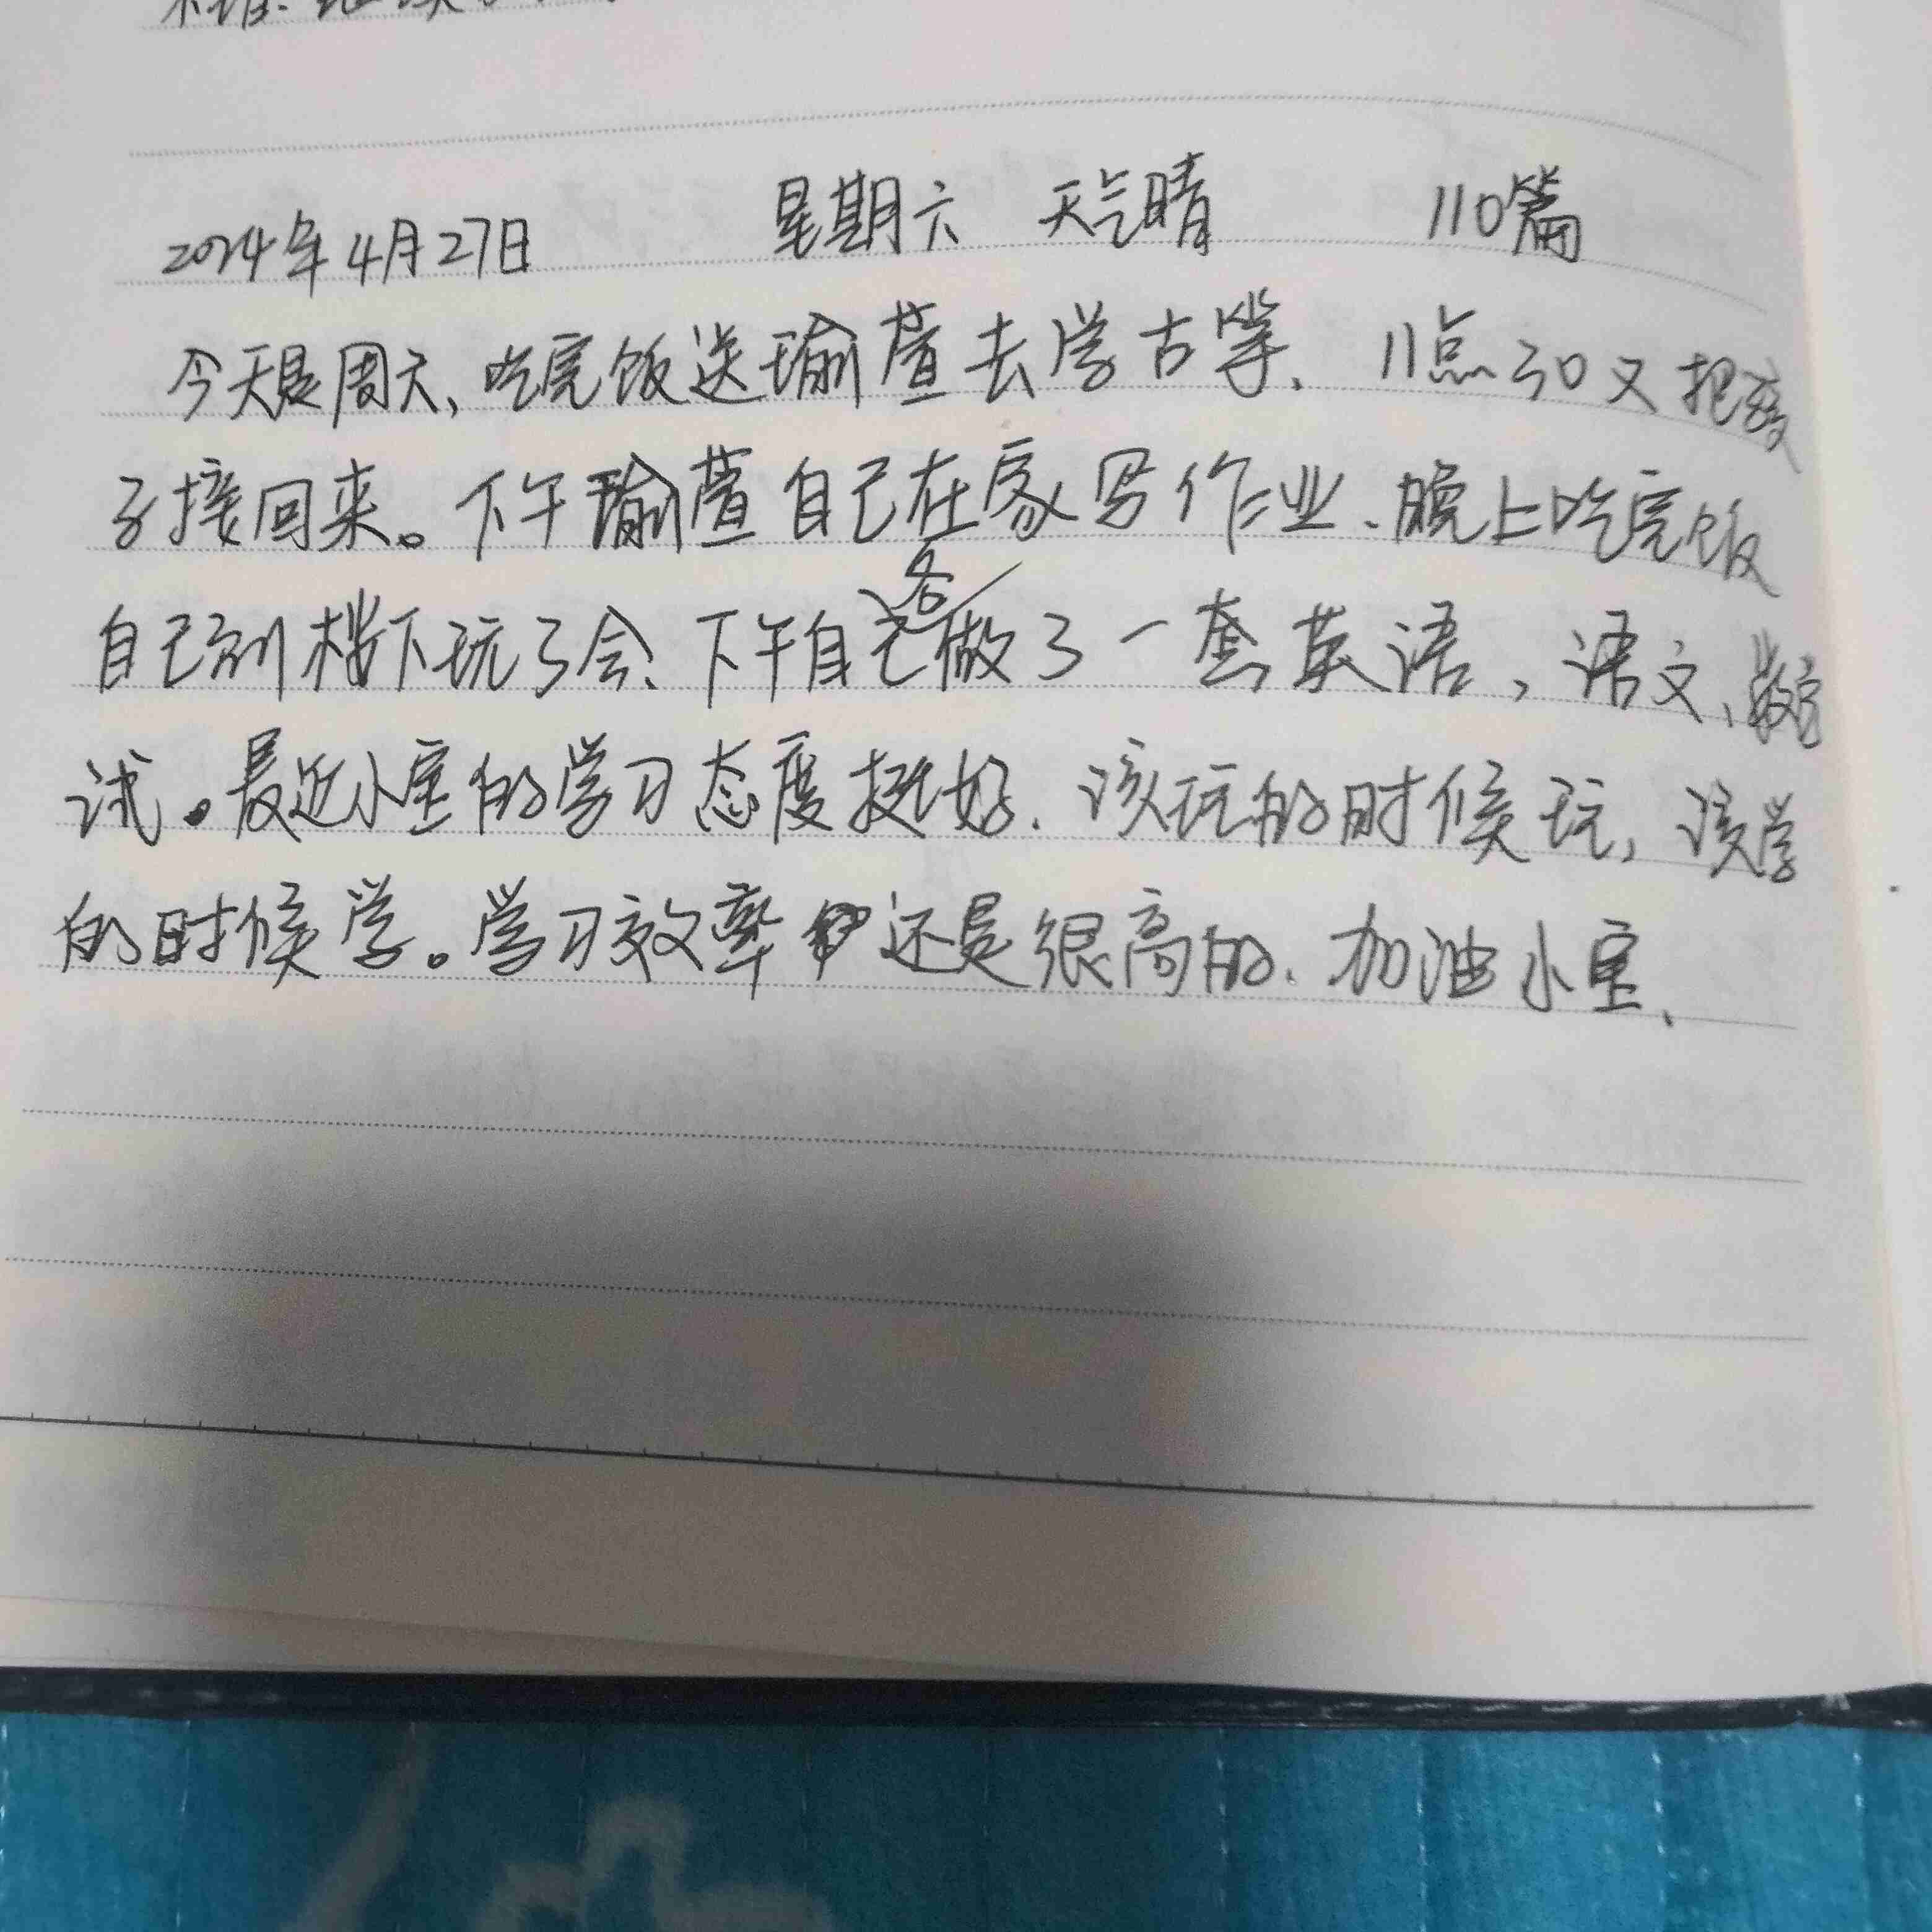 2024年4月27日 星期六 天气晴 110篇
今天是周天,吃完饭送瑜萱去学古筝、11点30又把孩
子接回来。下午瑜萱自己在家写作业、晚上吃完饭
自己到楼下玩了会、下午自己各做了一套英语,语文、数学
试。最近小宝的学习态度挺好、该玩的时候玩,该学
的时候学。学习效率还是很高的、加油小宝、